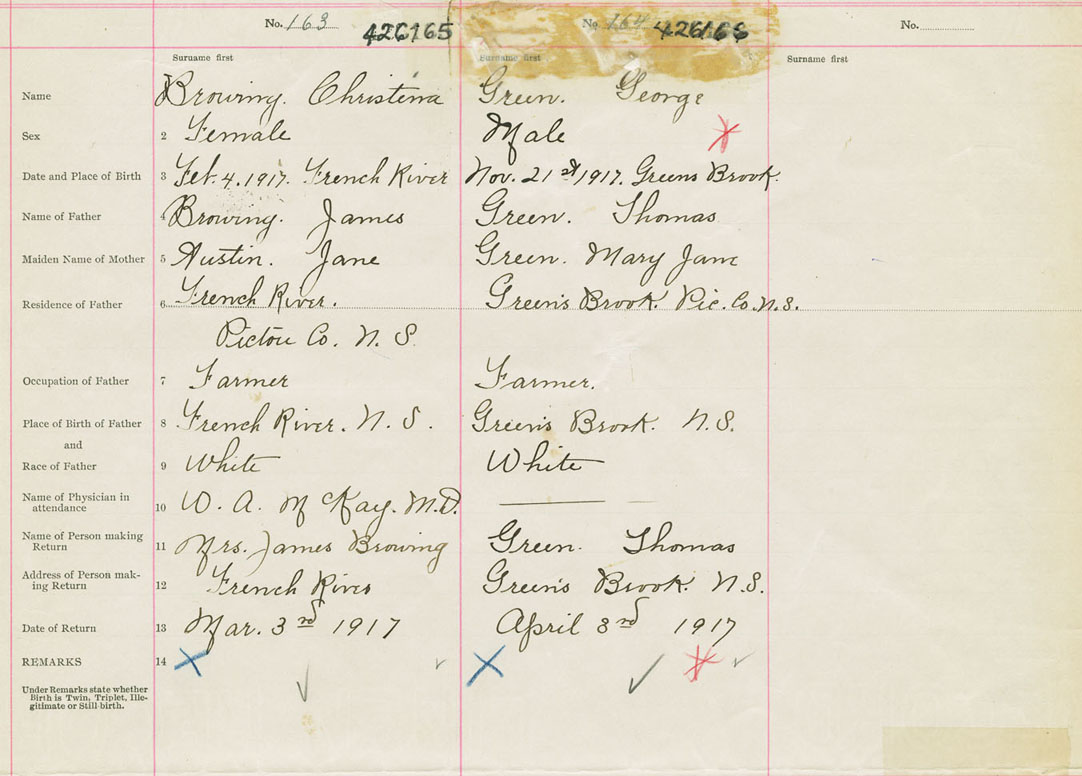 No. 163 426165 No. 164 426166 No.
Surname first Surname first Surname first
Name Browing. Christena Green. George
Sex 2 Female Male
Date and Place of Birth 3 Feb. 4. 1917. French River Nov. 21st 1917. Greens Brook.
Name of Father 4 Browing. James Green. Thomas
Maiden Name of Mother 5 Austin. Jane Green. Mary Jane
Residence of Father 6 French River. Green's Brook. Pic. Co. N.S.
Pictou Co. N. S.
Occupation of Father 7 Farmer Farmer.
Place of Birth of Father 8 French River. N. S. Green's Brook. N.S.
and
Race of Father 9 White White
Name of Physician in
attendance 10 W. A. McKay. M.D.
Name of Person making
Return 11 Mrs. James Browing Green. Thomas
Address of Person mak-
ing Return 12 French River Green's Brook. N.S.
Date of Return 13 Mar. 3rd 1917 April 3rd 1917
REMARKS 14
Under Remarks state whether
Birth is Twin, Triplet, Ille-
gitimate or Still-birth.